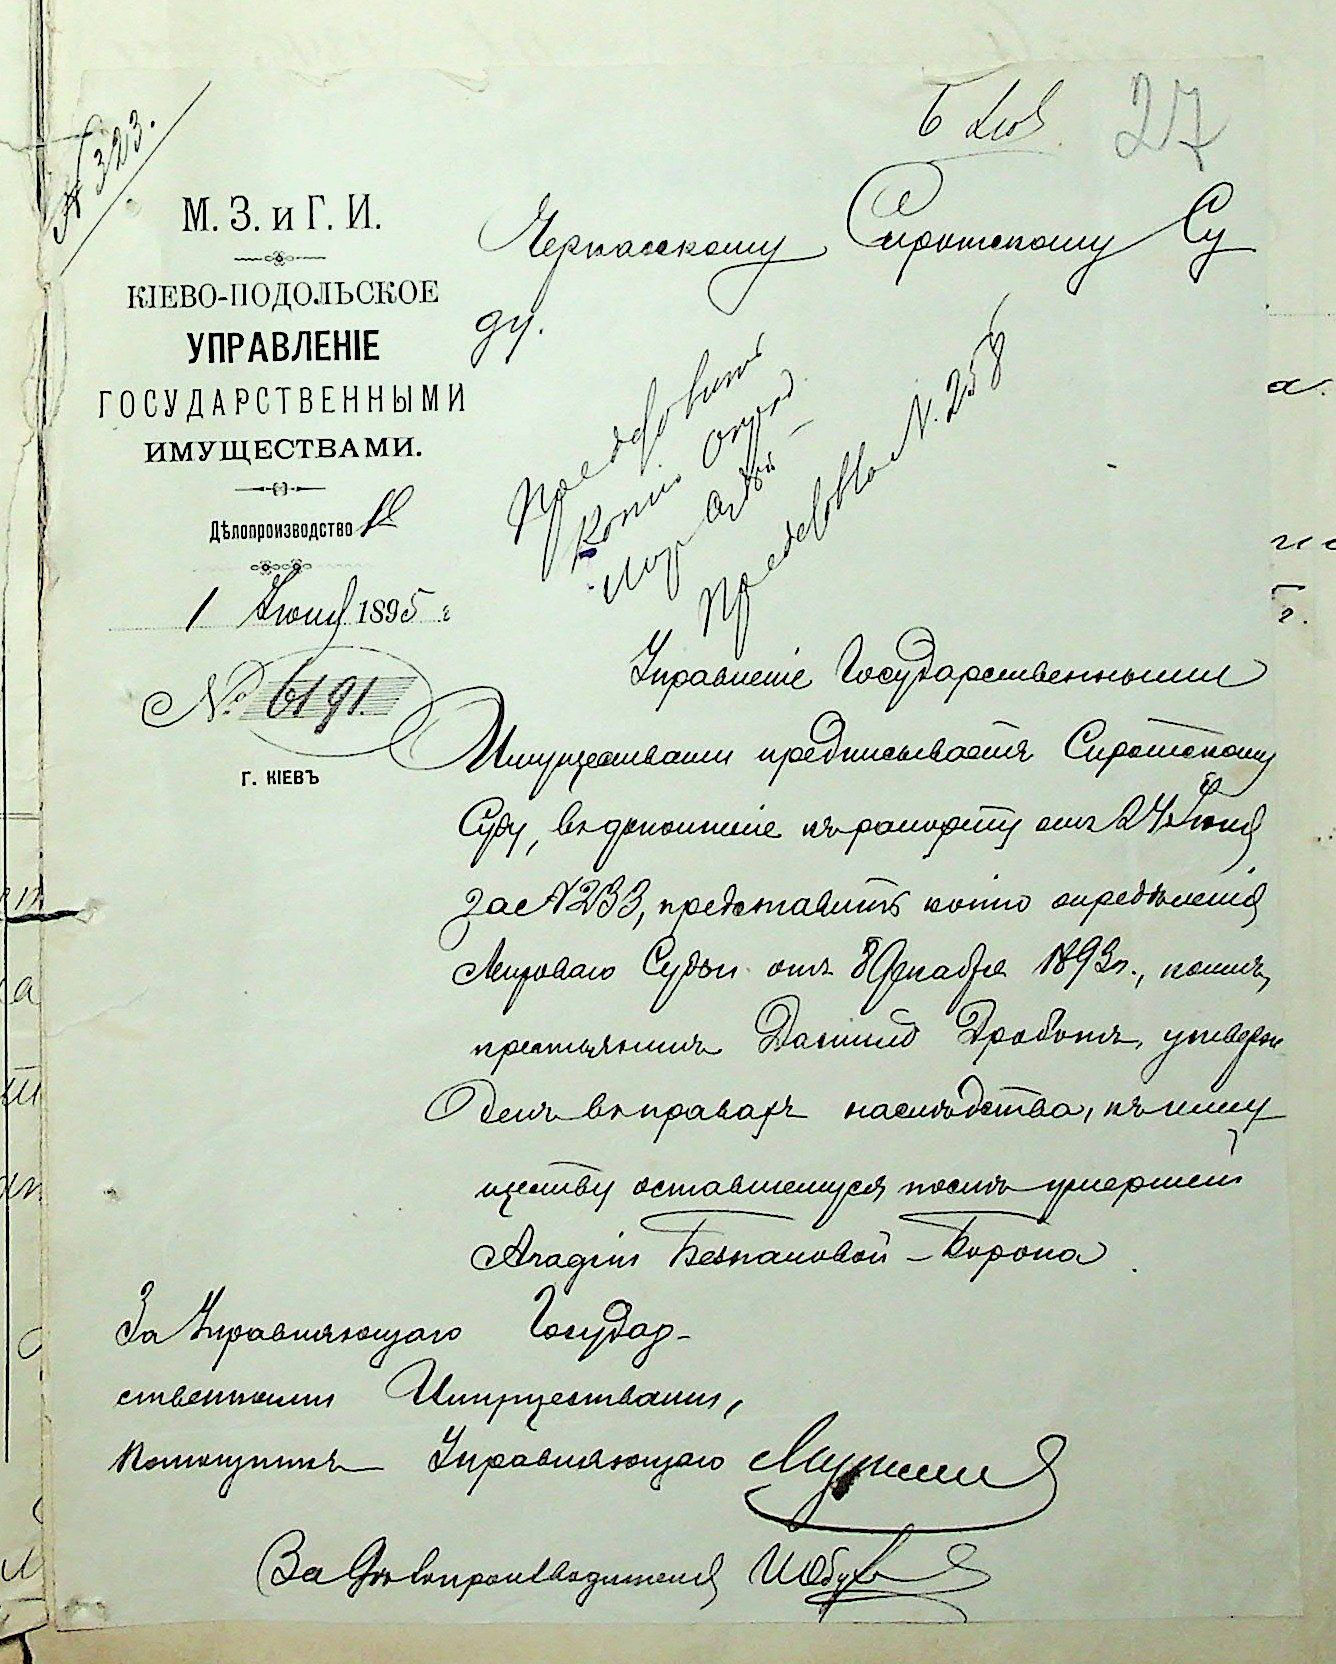 № 323.
6 Іюня
27
М. З. и Г. И.
КІЕВО-ПОДОЛЬСКОЕ
УПРАВЛЕНІЕ
ГОСУДАРСТВЕННЫМИ
ИМУЩЕСТВАМИ.
Дѣлопроизводство
1 Іюня 1895 г
№ 6191.
Г. КІЕВЪ
Черкасскому Сиротскому Су
ду.
Представить
копію опред.
Мир Судьи
Представлено N. 258
Управленіе Государственными
Имуществами предписываетъ Сиротскому
Суду, въ дополненіе къ рапорту отъ 24 Іюня
за № 233, представить копію опредѣленія
Мироваго Судьи отъ 8 Декабря 1893 г., коимъ
крестьянинъ Даніилъ Дроботъ, утверж
денъ въ правахъ наслѣдства, къ иму
ществу оставшемуся послѣ умершей
Агафіи Безпаловой-Борона
За Управляющаго Государ-
ственными Имуществами,
Помощникъ Управляющаго
За Дѣлопроизводителя